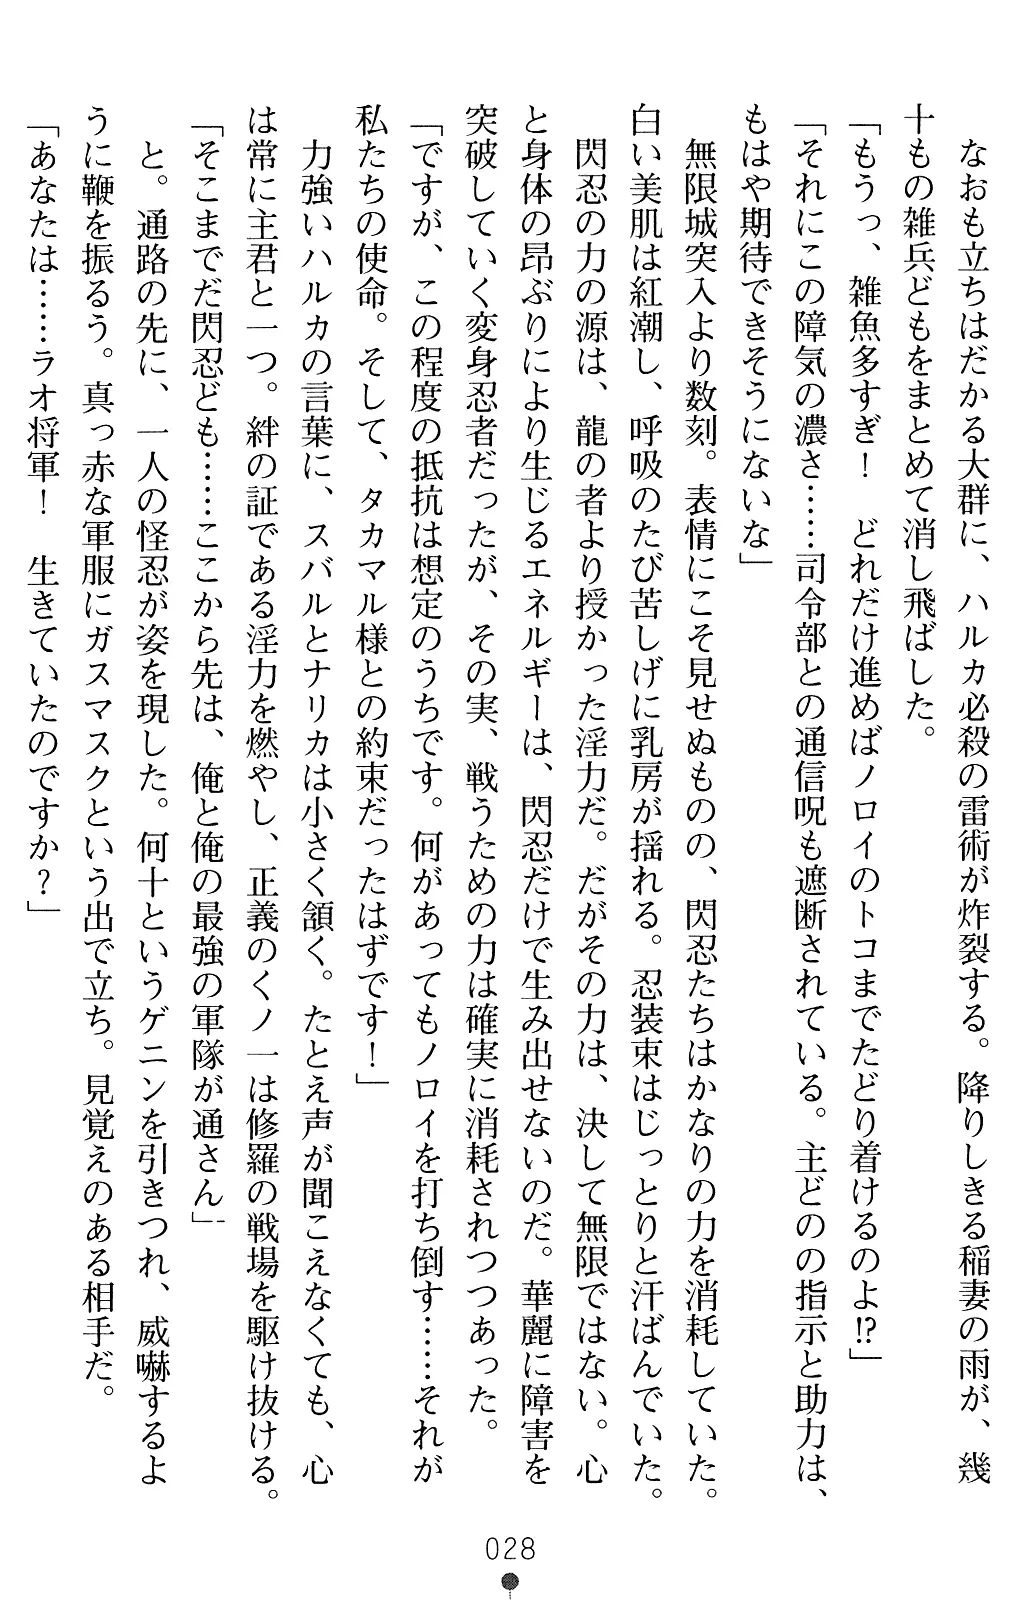 なおも立ちはだかる大群に、ハルカ必殺の雷術が炸裂する。降りしきる稲妻の雨が、幾
十もの雑兵どもをまとめて消し飛ばした。
「もうっ、雑魚多すぎ！　どれだけ進めばノロイのトコまでたどり着けるのよ!?」
「それにこの障気の濃さ……司令部との通信呪も遮断されている。主どのの指示と助力は、
もはや期待できそうにないな」
無限城突入より数刻。表情にこそ見せぬものの、閃忍たちはかなりの力を消耗していた。
白い美肌は紅潮し、呼吸のたび苦しげに乳房が揺れる。忍装束はじっとりと汗ばんでいた。
閃忍の力の源は、龍の者より授かった淫力だ。だがその力は、決して無限ではない。心
と身体の昂ぶりにより生じるエネルギーは、閃忍だけで生み出せないのだ。華麗に障害を
突破していく変身忍者だったが、その実、戦うための力は確実に消耗されつつあった。
「ですが、この程度の抵抗は想定のうちです。何があってもノロイを打ち倒す……それが
私たちの使命。そして、タカマル様との約束だったはずです！」
力強いハルカの言葉に、スバルとナリカは小さく頷く。たとえ声が聞こえなくても、心
は常に主君と一つ。絆の証である淫力を燃やし、正義のくノ一は修羅の戦場を駆け抜ける。
「そこまでだ閃忍ども……ここから先は、俺と俺の最強の軍隊が通さん」
と。通路の先に、一人の怪忍が姿を現した。何十というゲニンを引きつれ、威嚇するよ
うに鞭を振るう。真っ赤な軍服にガスマスクという出で立ち。見覚えのある相手だ。
「あなたは……ラオ将軍！　生きていたのですか？」
028